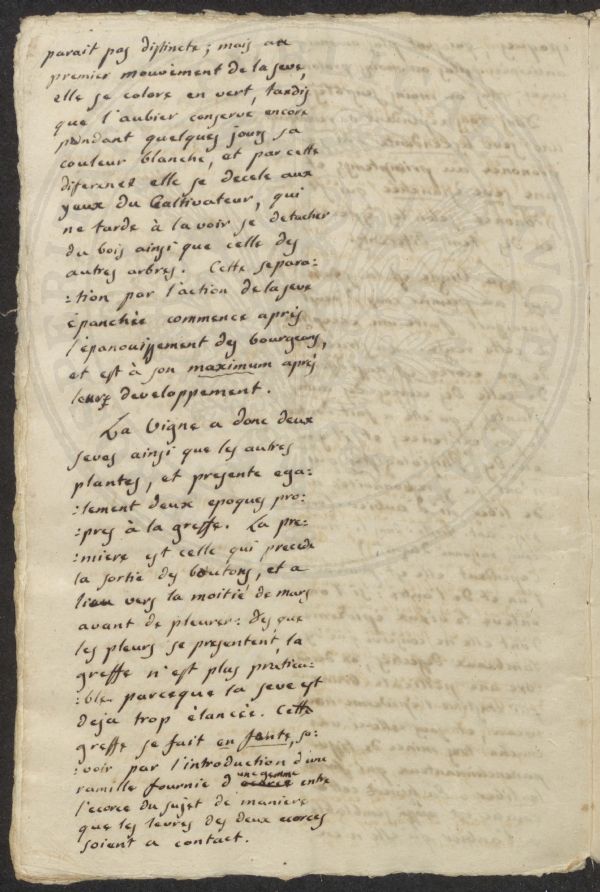 parait pas distincte; mais au
premier mouvement de la seve,
elle se colore en vert, tandis
que l'aubier conserve encore
pendant quelques jours sa
couleur blanche, et par cette
diference elle se decele aux
yeux du Cultivateur, qui
ne tarde à la voir se detacher
du bois ainsi que celle des
autres arbres. Cette separa:
:tion par l'action de la seve
épanchée commence après
l'épanouissement des bourgeons,
et est à son maximum après
leurs developpement.
La Vigne a donc deux
seves ainsi que les autres
plantes, et presente ega:
:lement deux epoques pro:
:pres à la greffe. La pre:
:miere est celle qui precede
la sortie des boutons, et a
lieu vers la moitié de mars
avant de pleurer: des que
les pleurs se presentent, la
greffe n'est plus pratica:
:ble parceque la seve est
deja trop élancée. Cette
greffe se fait en fente, sa:
:voir par l'introduction d'une
ramille fournie d'une gemme entre
l'ecorce du sujet de maniere
que les levres des deux ecorces
soient a contact.